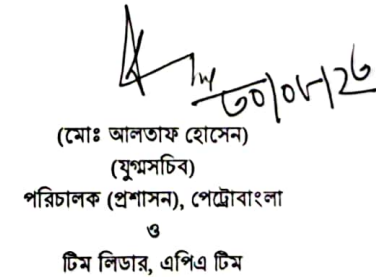 ৩০/০৮/২৩
(মোঃ আলতাফ হোসেন)
(যুগ্মসচিব)
পরিচালক (প্রশাসন), পেট্রোবাংলা
ও
টিম লিডার, এপিএ টিম